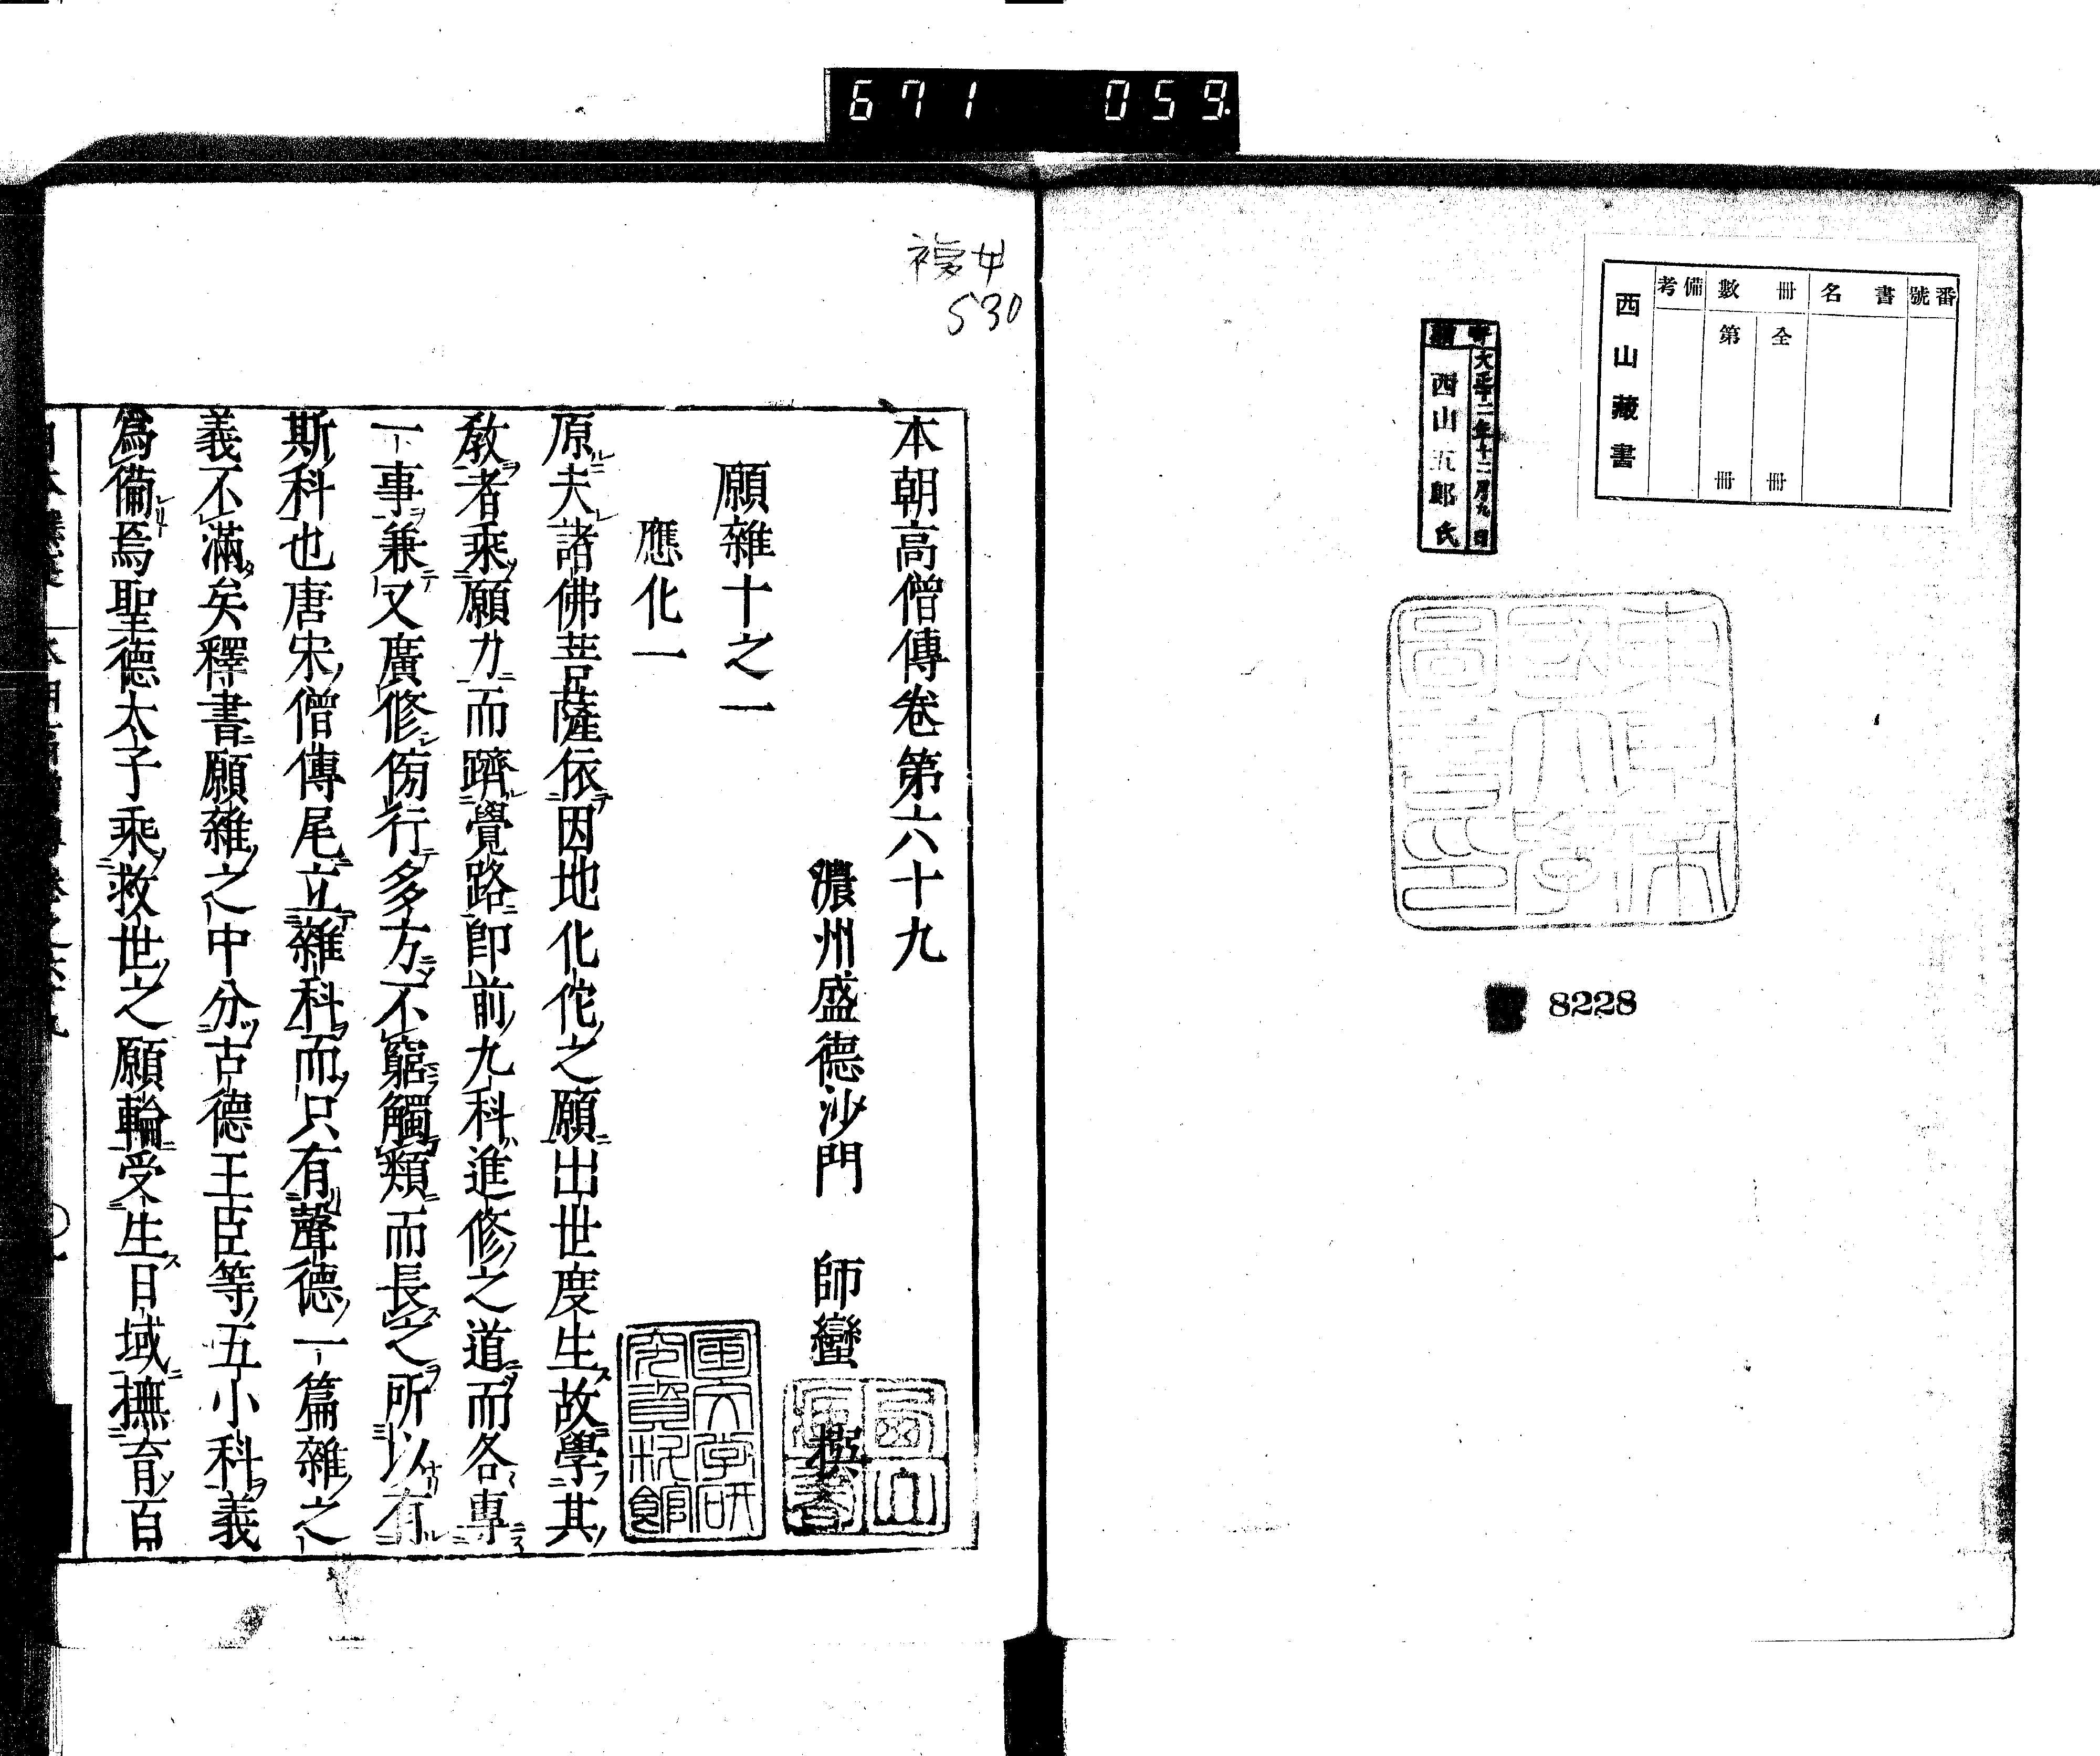 671 059
番號
書名
冊數
全 冊
第 冊
備考
西山藏書
寄贈
大正十二年十二月九日
西山五郎氏
東京帝國大學圖書印
8228
複女
530
本朝高僧傳卷第六十九
濃州盛德沙門 師蠻 撰
願雜十之一
應化一
原夫諸佛菩薩依因地化佗之願出世度生故學其
教者乘願力而躋覺路即前九科進修之道而各專
一事兼又廣修傍行多方不窮觸類而長之所以有
斯科也唐宋僧傳尾立雜科而只有聲德一篇雜之
義不滿矣釋書願雜之中分古德王臣等五小科義
爲備焉聖德太子乘救世之願輪受生日域撫育百